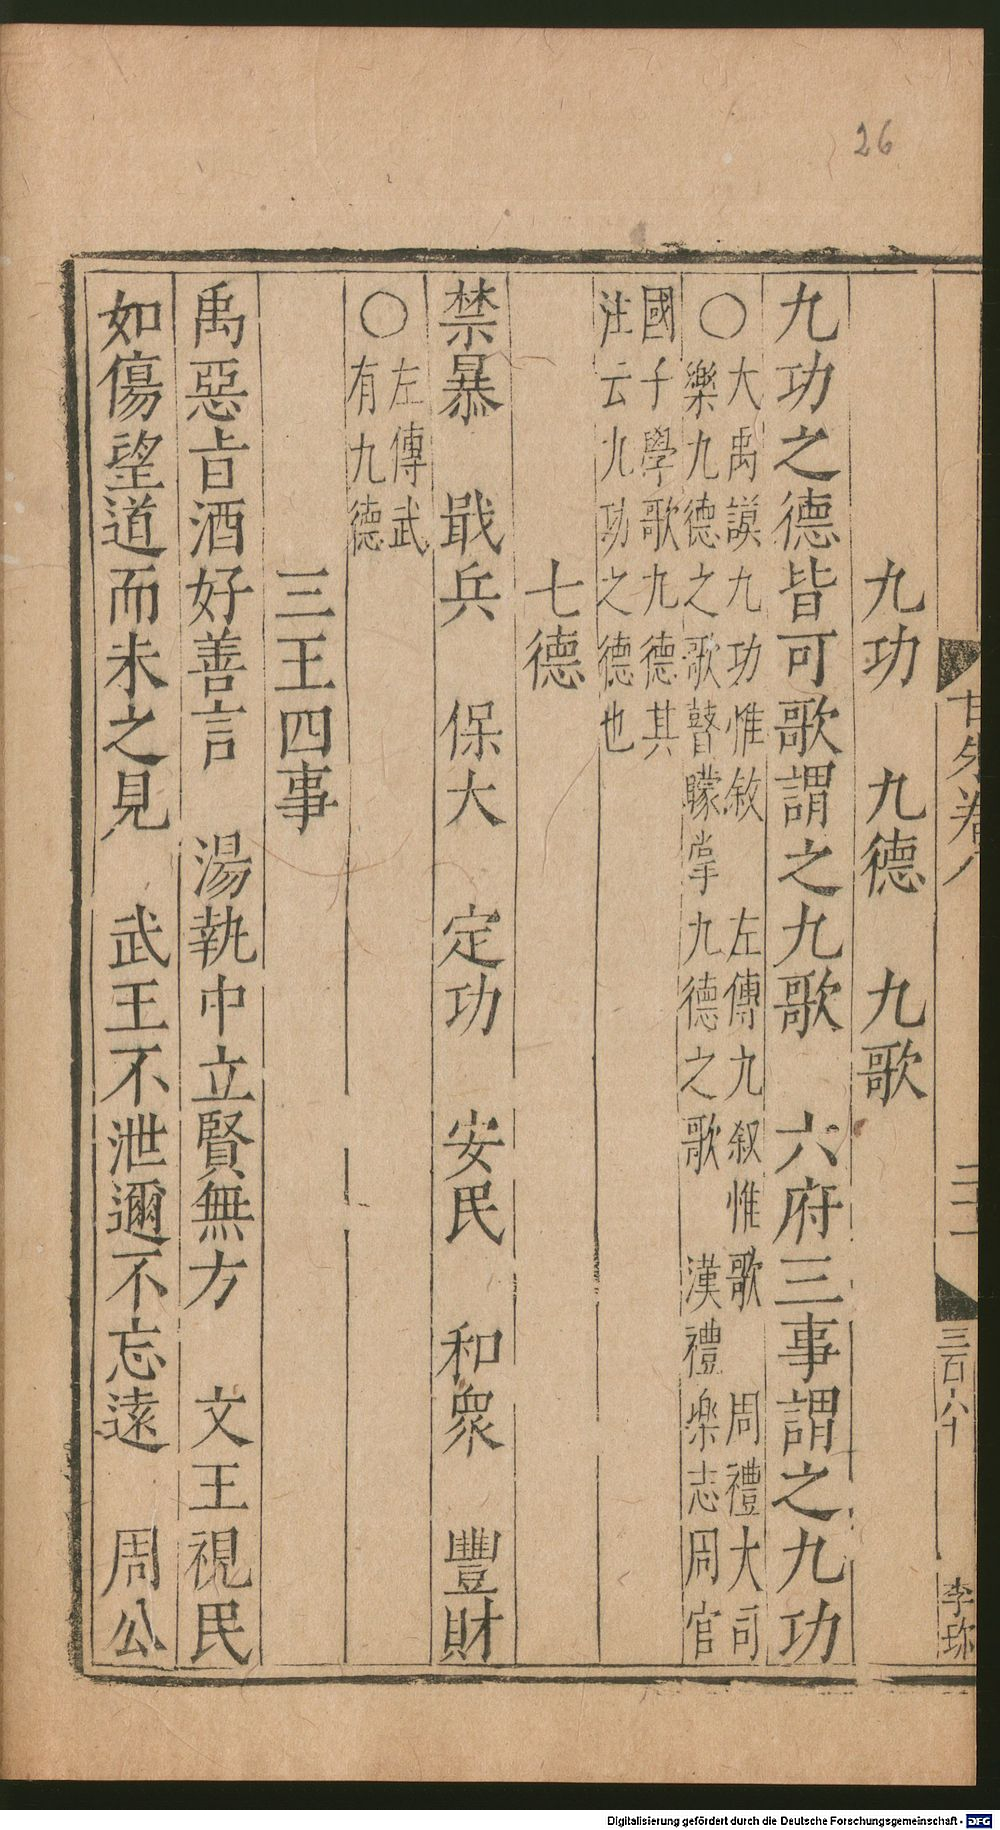 26
甘朱卷八 二十一 三百六十 李珎
九功 九德 九歌
九功之德皆可歌謂之九歌 六府三事謂之九功
○大禹謨九功惟敘 左傳九叙惟歌 周禮大司
樂九德之歌瞽矇掌九德之歌 漢禮楽志周官
國子學歌九德其
注云九功之德也
七德
禁暴 戢兵 保大 定功 安民 和衆 豐財
○左傳武
有九德
三王四事
禹惡旨酒好善言 湯執中立賢無方 文王視民
如傷望道而未之見 武王不泄邇不忘遠 周公
Digitalisierung gefördert durch die Deutsche Forschungsgemeinschaft - DFG